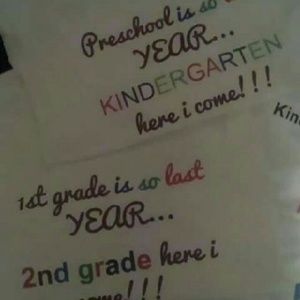 Preschool is so
YEAR...
KINDERGARTEN
here i come!!!
Kin
1st grade is so last
YEAR...
2nd grade here i
!!!